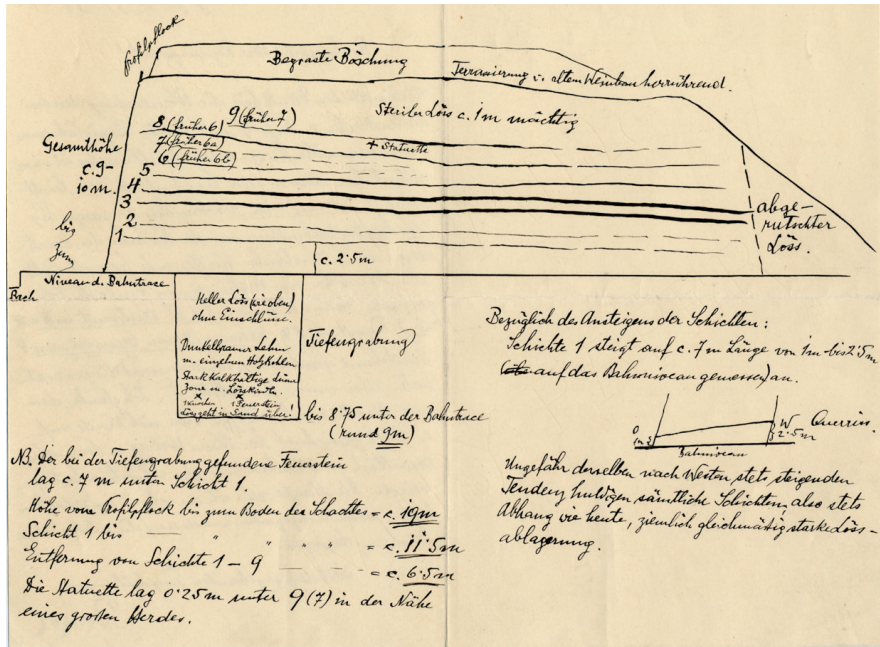 Profilpflock
Begraste Böschung
Terrassierung v. altem Weinbau herrührend.
Steriler Löss c. 1m mächtig
8 (früher 6) 9 (früher 7)
7 (früher 6a)
+ Statuette
6 (früher 6b)
5
4
3
2
1
Gesamthöhe
c. 9-
10 m.
bis
zum
Niveau d. Bahntrace
Bach
c. 2·5m
abge-
rutschter
Löss.
Heller Löss (wie oben)
ohne Einschlüsse.
Dunkelbrauner Lehm
m. einzelnen Holzkohlen
Stark kalkhältige dünne
Zone m. Lösskindln.
x x
1 Knochen 1 Feuerstein
Löss geht in Sand über!
Tiefengrabung
bis 8·75 unter der Bahntrace
(rund 9m)
Bezüglich des Ansteigens der Schichten:
Schichte 1 steigt auf c. 7 m Länge von 1m bis 2·5m
auf das Bahnniveau gemessen) an.
O
W
2·5m
Bahnniveau
Ungefähr derselben nach Westen stets steigenden
Tendenz huldigen sämtliche Schichten, also stets
Abhang wie heute, ziemlich gleichmäßig starke Löss-
ablagerung.
NB. Der bei der Tiefengrabung gefundene Feuerstein
lag c. 7 m unter Schicht 1.
Höhe vom Profilpflock bis zum Boden des Schachtes = c. 19m
Schicht 1 bis — " " " " = c. 11·5m
Entfernung von Schichte 1 – 9 — — — = c. 6·5m
Die Statuette lag 0·25m unter 9 (7) in der Nähe
eines großen Herdes.